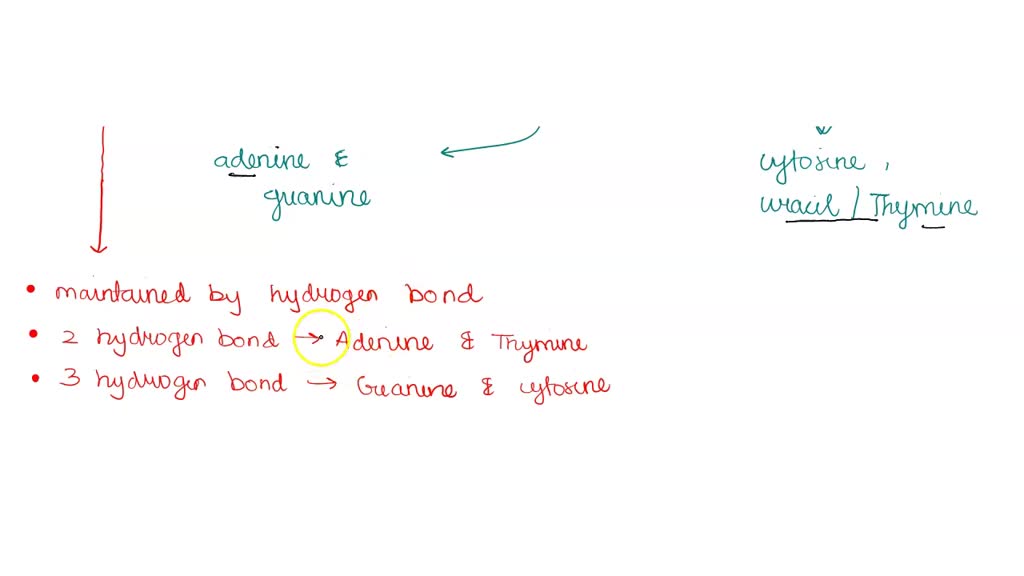 adenine &
guanine
cytosine ,
uracil / Thymine
• maintained by hydrogen bond
• 2 hydrogen bond → Adenine & Thymine
• 3 hydrogen bond → Guanine & cytosine